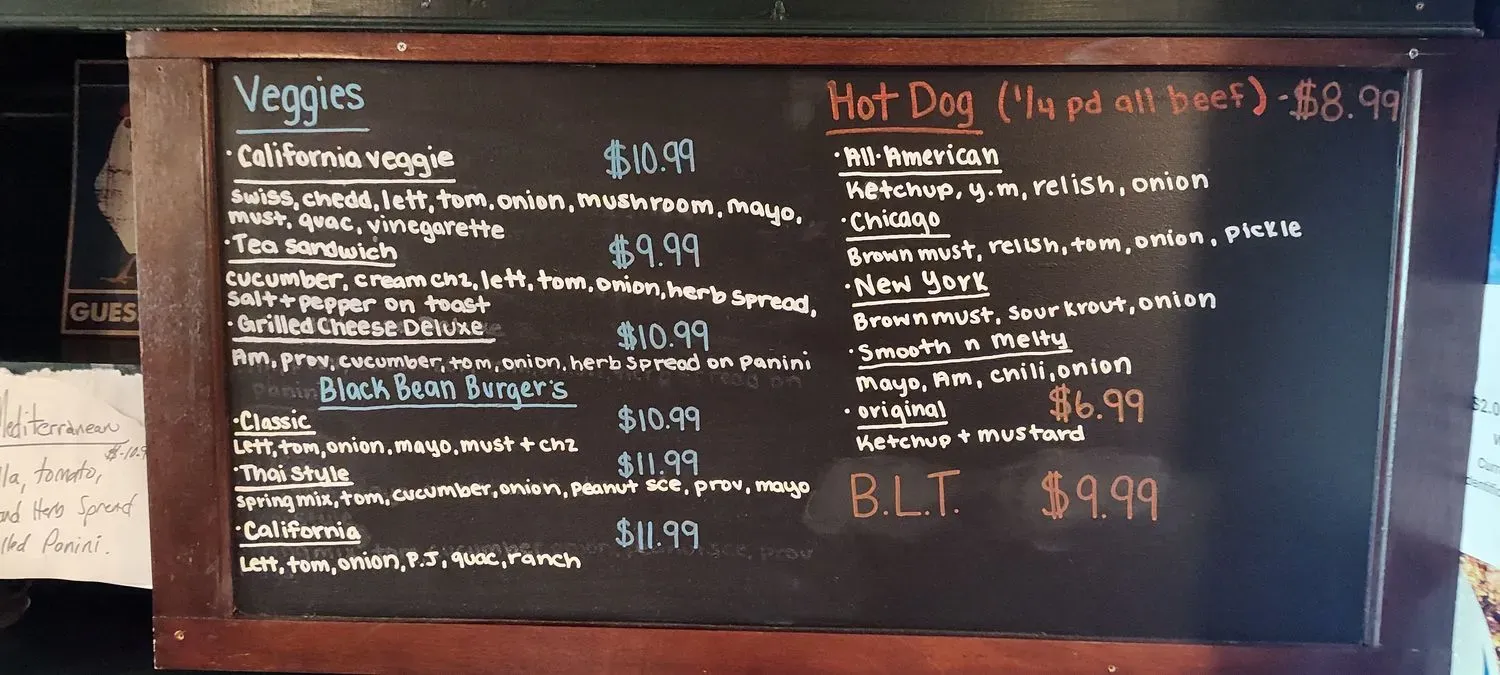 Veggies
·California veggie $10.99
swiss, chedd, lett, tom, onion, mushroom, mayo,
must, guac, vinegarette
·Tea sandwich $9.99
cucumber, cream chz, lett, tom, onion, herb spread,
salt + pepper on toast
·Grilled Cheese Deluxe $10.99
Am, prov, cucumber, tom, onion, herb spread on panini
Black Bean Burger's
·Classic $10.99
Lett, tom, onion, mayo, must + chz
·Thai Style $11.99
spring mix, tom, cucumber, onion, peanut sce, prov, mayo
·California $11.99
Lett, tom, onion, P.J, guac, ranch
Hot Dog (1/4 pd all beef) - $8.99
·All-American
Ketchup, y.m, relish, onion
·Chicago
Brown must, relish, tom, onion, pickle
·New York
Brown must, sour krout, onion
·Smooth n melty
Mayo, Am, chili, onion
·original $6.99
Ketchup + mustard
B.L.T. $9.99
GUES
Mediterranean
$-10.9
lla, tomato,
and Herb Spread
lled Panini.
$2.0